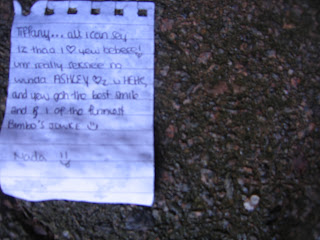 Tiffany... all i can say
iz thaa i ♡ you bebess!
urr really no
wunda ASHLEY ♡z u HEHE,
and you gah the best smile
and 1 of tha funniest
Bimbo's
Nada